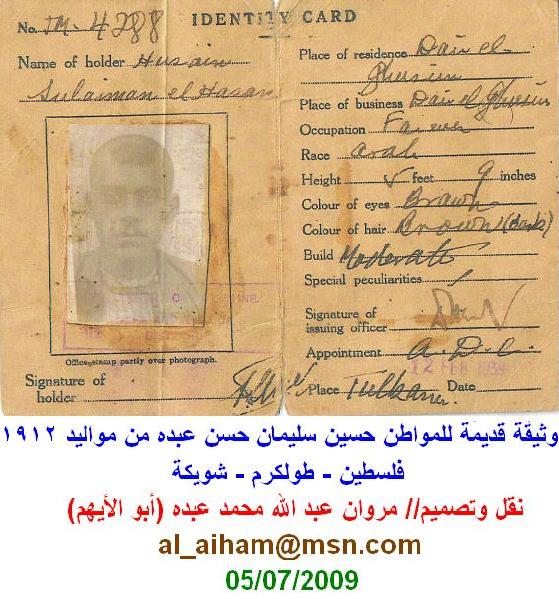 IDENTITY CARD
No. JM. 4288
Name of holder Husain
Sulaiman el Hasan
Office stamp partly over photograph.
Signature of
holder
Place of residence Dair el
Ghusun
Place of business Dair el Ghusun
Occupation Farmer
Race Arab
Height 5 feet 9 inches
Colour of eyes Brown
Colour of hair Brown (Dark)
Build Moderate
Special peculiarities
Signature of
issuing officer
Appointment A.D.C.
12 FEB 1934
Place Tulkarm Date
وثيقة قديمة للمواطن حسين سليمان حسن عبده من مواليد ١٩١٢
فلسطين - طولكرم - شويكة
نقل وتصميم// مروان عبد الله محمد عبده (أبو الأيهم)
al_aiham@msn.com
05/07/2009